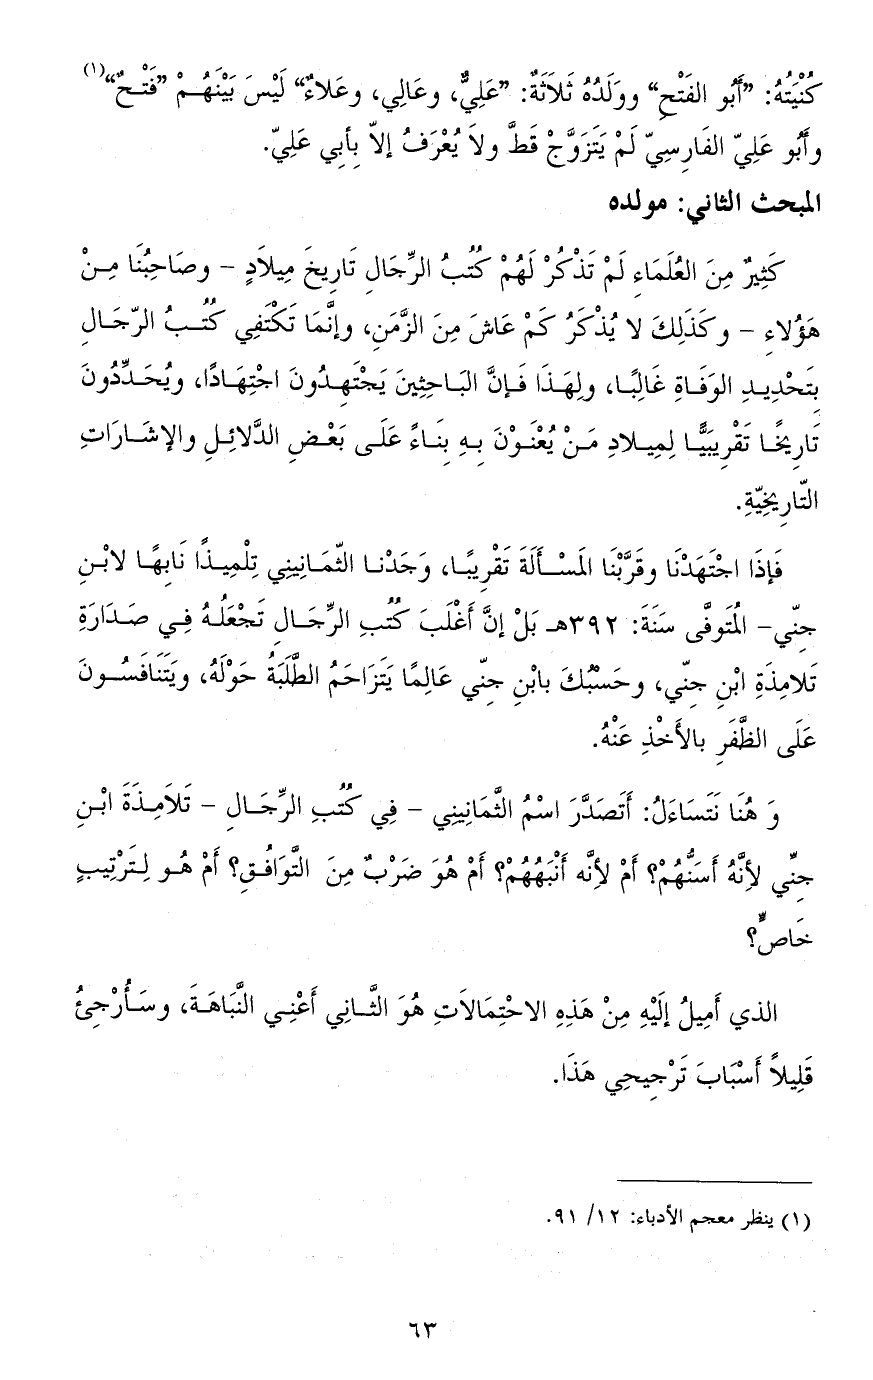 كُنْيَتُهُ: "أَبُو الفَتْحِ" ووَلَدُهُ ثَلاَثَةٌ: "عَلِيٌّ، وعَالِي، وعَلاءٌ" لَيْسَ بَيْنَهُمْ "فَتْحٌ"(١)
وأَبُو عَلِيّ الفَارِسِيّ لَمْ يَتَزَوَّجْ قَطَّ ولاَ يُعْرَفُ إلاّ بِأبي عَلِيّ.
المبحث الثاني: مولده
كَثِيرٌ مِنَ العُلَمَاءِ لَمْ تَذْكُرْ لَهُمْ كُتُبُ الرِّجَالِ تَاريخَ مِيلاَدٍ – وصَاحِبُنَا مِنْ
هَؤُلاءِ – وكَذَلِكَ لا يُذْكَرُ كَمْ عَاشَ مِنَ الزَّمَنِ، وإنَّمَا تَكْتَفِي كُتُبُ الرّجَالِ
بِتَحْدِيدِ الوَفَاةِ غَالِبًا، ولِهَذَا فَإنَّ البَاحِثِينَ يَجْتَهِدُونَ اجْتِهَادًا، ويُحَدِّدُونَ
تَارِيخًا تَقْرِيبيًّا لِمِيلادِ مَنْ يُعْنَوْنَ بِهِ بِنَاءً عَلَى بَعْضِ الدَّلائِلِ والإشَارَاتِ
التّاريخِيّةِ.
فَإذَا اجْتَهَدْنَا وقَرَّبْنَا المَسْأَلَةَ تَقْرِيبًا، وَجَدْنا الثّمَانِيني تِلْمِيذًا نَابِهًا لابْنِ
جنّي– المُتَوفَّى سَنَةَ: ٣٩٢هـ بَلْ إنَّ أَغْلَبَ كُتُبِ الرِّجَالِ تَجْعَلُهُ فِي صَدَارَةِ
تَلامِذَةِ ابْنِ جنّي، وحَسْبُكَ بابْنِ جنّي عَالِمًا يَتَزَاحَمُ الطَّلَبَةُ حَوْلَهُ، ويَتَنَافَسُونَ
عَلَى الظَّفَرِ بالأَخْذِ عَنْهُ.
وَ هُنَا نَتَسَاءَلُ: أَتَصَدَّرَ اسْمُ الثَّمَانِيني – فِي كُتُبِ الرِّجَالِ – تَلاَمِذَةَ ابْنِ
جنِّي لأنَّهُ أسَنُّهُمْ؟ أمْ لأنَّه أنْبَهُهُمْ؟ أمْ هُوَ ضَرْبٌ مِنَ التَّوَافُقِ؟ أمْ هُو لِتَرْتِيبٍ
خَاصٍّ؟
الذي أَمِيلُ إلَيْهِ مِنْ هَذِهِ الاحْتِمَالاَتِ هُوَ الثَّانِي أَعْنِي النَّبَاهَةَ، وسَأُرْجِئُ
قَلِيلاً أسْبَابَ تَرْجِيحِي هَذَا.
(١) ينظر معجم الأدباء: ١٢/ ٩١.
٦٣